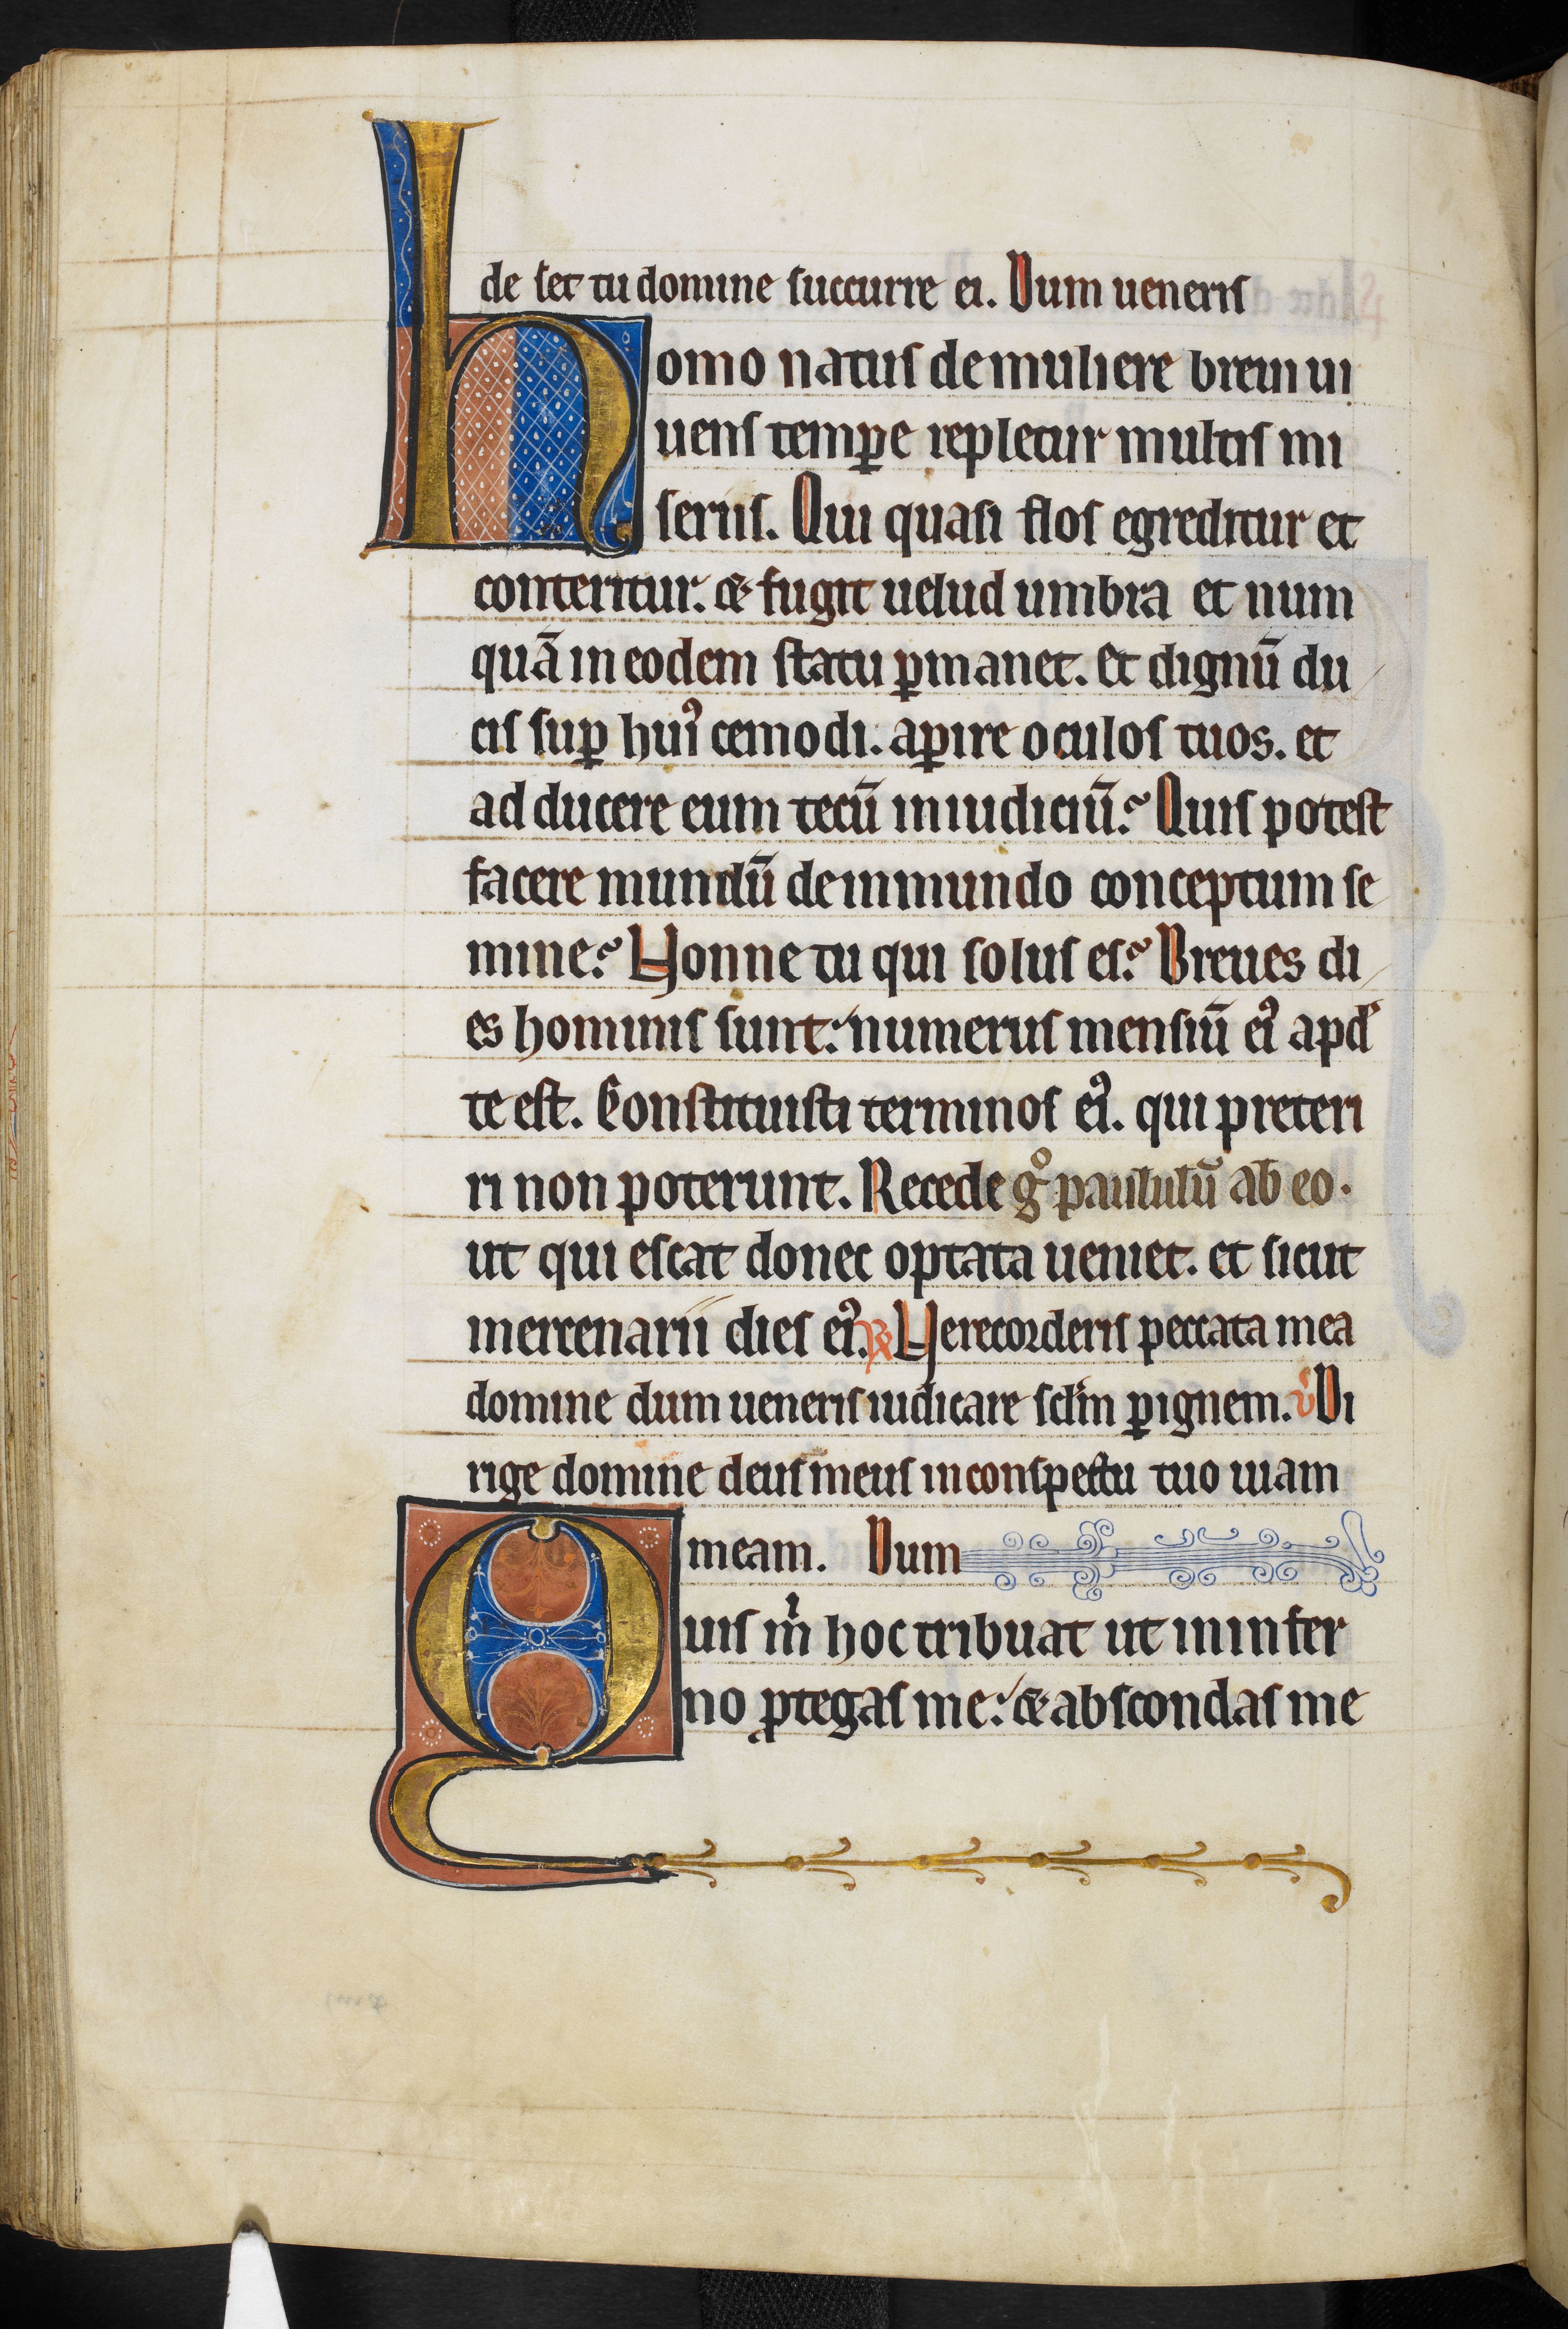 de set tu domine succurre ei. Dum ueneris
homo natus de muliere breui ui
uens temꝑe repletur multis mi
seriis. Qui quasi flos egreditur et
conteritur. ⁊ fugit uelud umbra et num
quā in eodem statu ꝑmanet. Et dignū du
cis suꝑ huiꝰ cemodi. aꝑire oculos tuos. et
ad ducere eum tecū in iudiciū? Quis potest
facere mundū de inmundo conceptum se
mine? Nonne tu qui solus es? Breues di
es hominis sunt: numerus mensiū eiꝰ apd̾
te est. Constituisti terminos eiꝰ. qui preteri
ri non poterunt. Recede gͦ paululū ab eo.
ut qui escat donec optata ueniet. et sicut
mercenarii dies eiꝰ. ꝶ Ne recorderis peccata mea
domine dum ueneris iudicare sclm̄ ꝑ ignem. v̾ Di
rige domine deus meus in conspectu tuo uiam
meam. Dum
Quis m̊i hoc tribuat ut in infer
no ꝓtegas me: ⁊ abscondas me